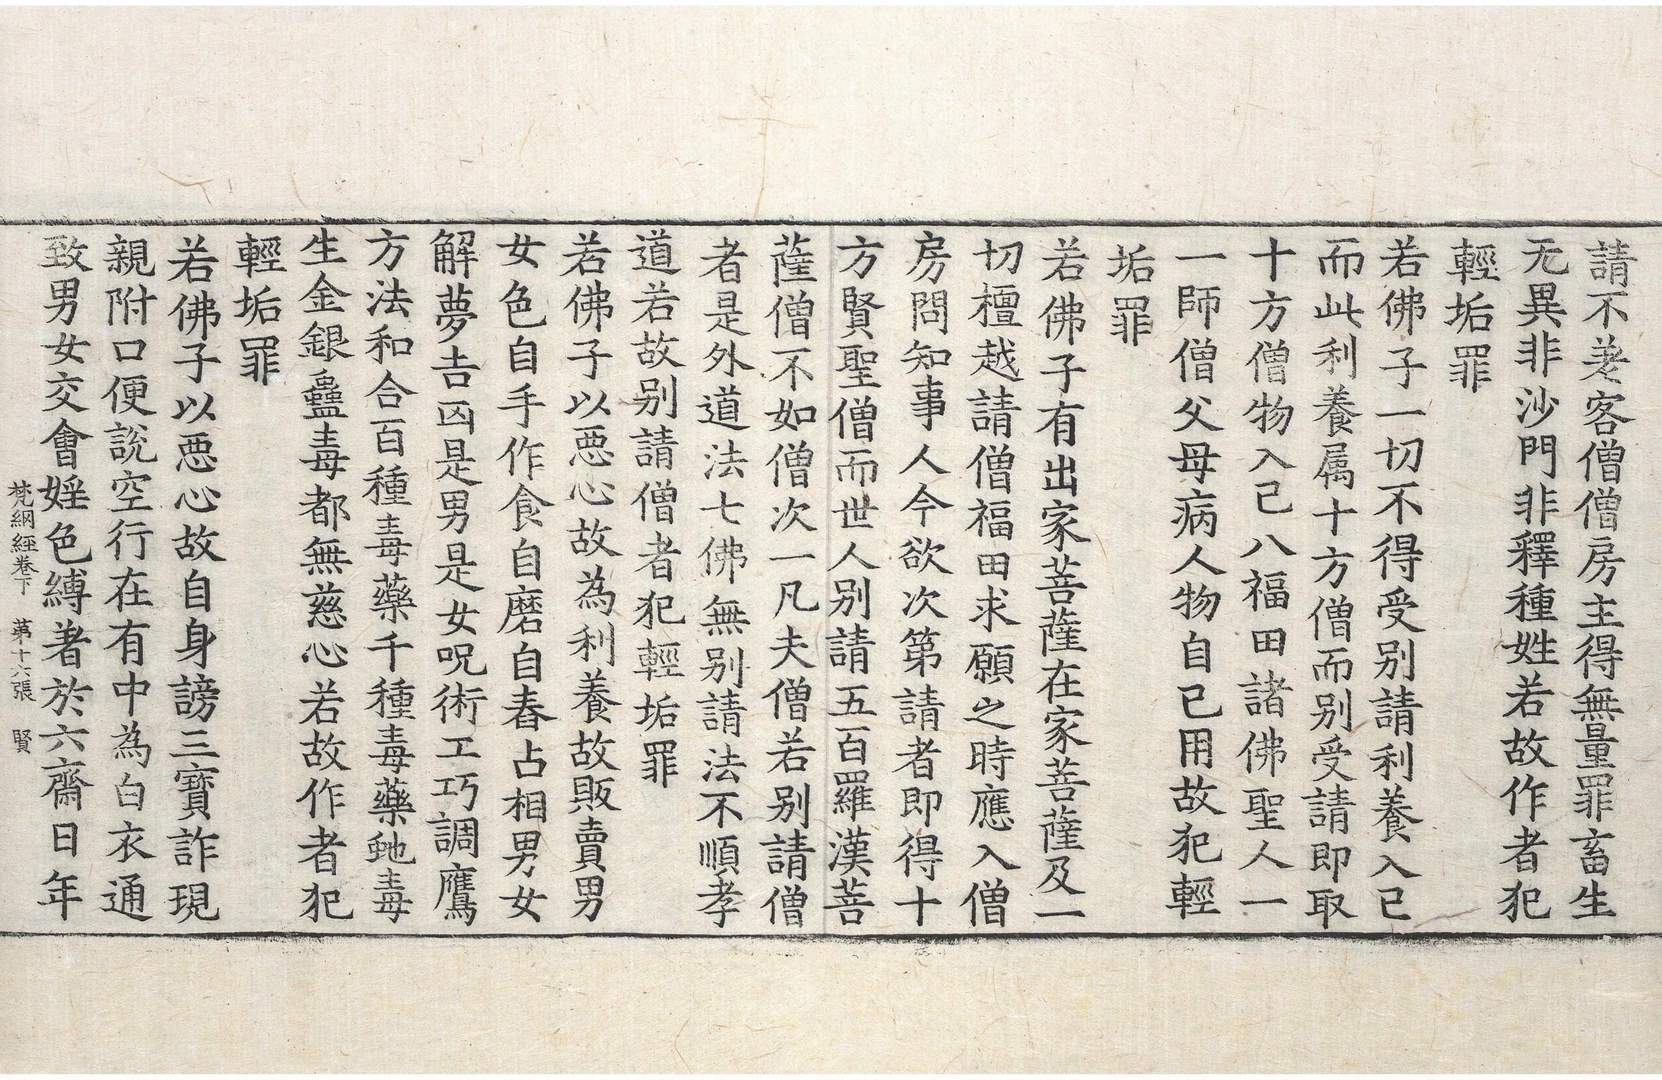 請不差客僧僧房主得無量罪畜生
无異非沙門非釋種姓若故作者犯
輕垢罪
若佛子一切不得受別請利養入己
而此利養属十方僧而別受請即取
十方僧物入己八福田諸佛聖人一
一師僧父母病人物自己用故犯輕
垢罪
若佛子有出家菩薩在家菩薩及一
切檀越請僧福田求願之時應入僧
房問知事人今欲次第請者即得十
方賢聖僧而世人別請五百羅漢菩
薩僧不如僧次一凡夫僧若別請僧
者是外道法七佛無別請法不順孝
道若故別請僧者犯輕垢罪
若佛子以惡心故為利養故販賣男
女色自手作食自磨自舂占相男女
解夢吉凶是男是女呪術工巧調鷹
方法和合百種毒藥千種毒藥虵毒
生金銀蠱毒都無慈心若故作者犯
輕垢罪
若佛子以惡心故自身謗三寶詐現
親附口便說空行在有中為白衣通
致男女交會婬色縛著於六齋日年
梵網經卷下 第十六張 賢